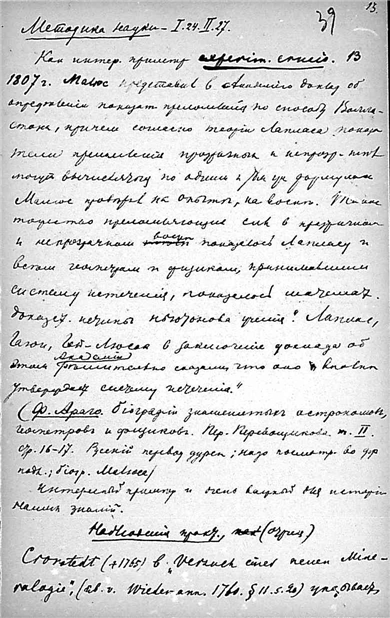 13.
39
Методика науки – I.24.II.27.
Как интер. пример В
1807 г. Малюс представил в Академию доклад об
определении показат. преломлений по способу Волла-
стона, причем согласно теории Лапласа показа-
тели преломления прозрачных и непрозр.
могут вычисляться по одним и формулам
Малюс проверил на опыты, на воск.
преломляющие в прозрачном
и непрозрачном показалось Лапласу и
всем геометрам и физикам, принимавшим
систему истечения, показалось математ.
доказат. истины ньютонова учения. Лаплас,
Гаюи, Гей-Люссак в заключение доклада об
этом Академии сказали, что оно вполне
утверждает систему истечения."
(Ф. Араго. біографіи знаменитых астрономов,
геометров и физиков. Пер. Перевощикова т. II.
стр. 16-17. перевод дурен; надо посмотр. во фр.
подл.; біогр. Малюса)
Интересный пример и очень важный для истории
наших знаний.
Cronstedt (+1765) в „Versuch einer neuen Mine-
ralogie", v. Wiedemann. 1760. § 11. s. 20) указывает